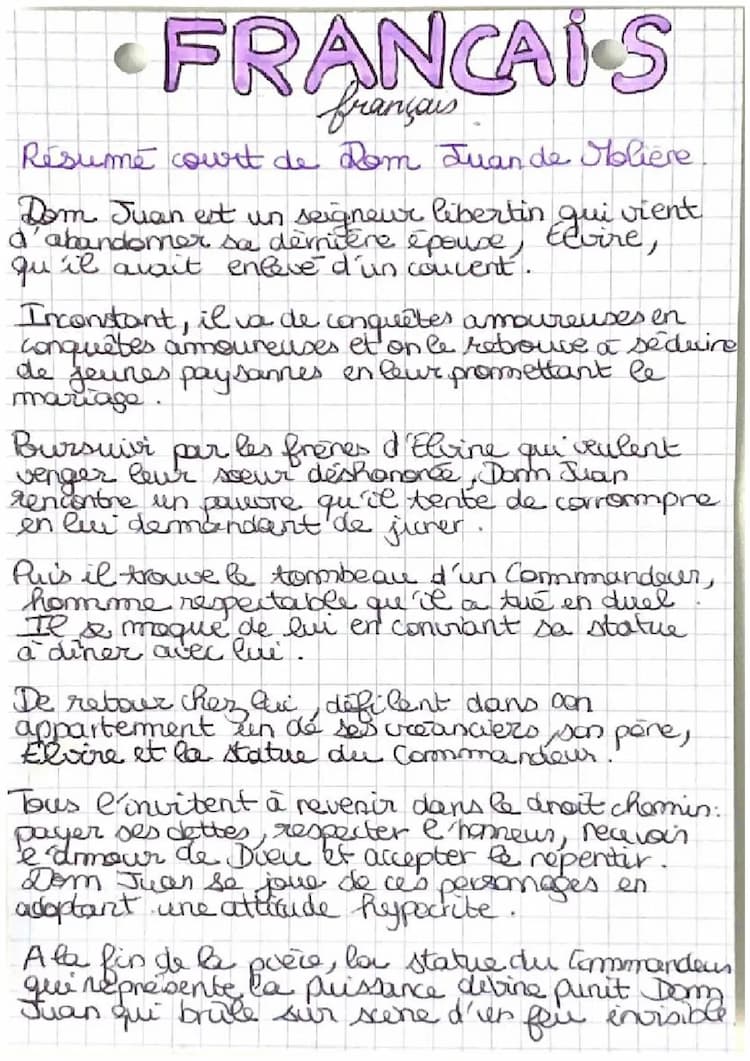 FRANCAIS
français
Résumé court de Dom Juan de Molière.
Dom Juan est un seigneur libertin qui vient
d'abandonner sa dernière épouse, Elvire,
qu'il avait enlevé d'un couvent.
Inconstant, il va de conquêtes amoureuses en
conquêtes amoureuses et on le retrouve à séduire
de jeunes paysannes en leur promettant le
mariage.
Poursuivi par les frères d'Elvire qui veulent
venger leur sœur déshonorée, Dom Juan
rencontre un pauvre qu'il tente de corrompre
en lui demandant de jurer.
Puis il trouve le tombeau d'un Commandeur,
homme respectable qu'il a tué en duel.
Il se moque de lui en conviant sa statue
à dîner avec lui.
De retour chez lui, défilent dans son
appartement un de ses créanciers, son père,
Elvire et la statue du Commandeur.
Tous l'invitent à revenir dans le droit chemin:
payer ses dettes, respecter l'honneur, recevoir
l'amour de Dieu et accepter le repentir.
Dom Juan se joue de ces personnages en
adoptant une attitude hypocrite.
A la fin de la pièce, la statue du Commandeur
qui représente la puissance divine punit Dom
Juan qui brûle sur scène d'un feu invisible